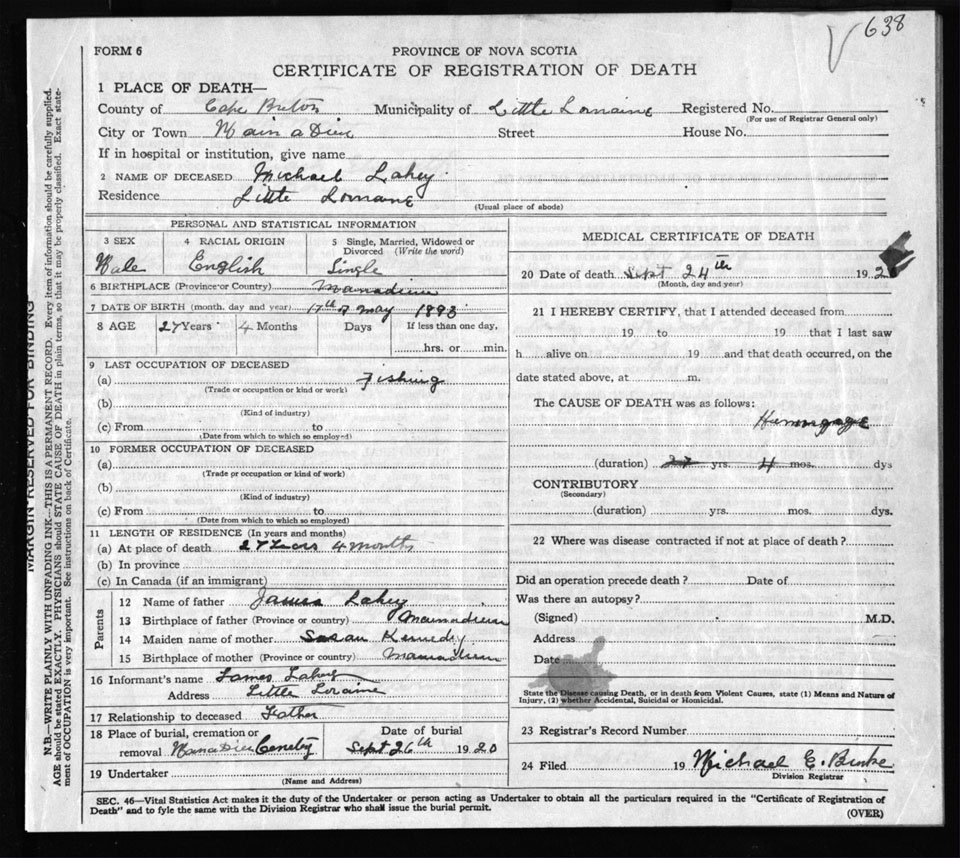 638
FORM 6
PROVINCE OF NOVA SCOTIA
CERTIFICATE OF REGISTRATION OF DEATH
1 PLACE OF DEATH—
County of Cape Breton Municipality of Little Lorraine Registered No.
(For use of Registrar General only)
City or Town Main a Dieu Street House No.
If in hospital or institution, give name
2 NAME OF DECEASED Michael Lahey
Residence Little Lorraine
(Usual place of abode)
MARGIN RESERVED FOR BINDING
N.B.—WRITE PLAINLY WITH UNFADING INK—THIS IS A PERMANENT RECORD. Every item of information should be carefully supplied.
AGE should be stated EXACTLY. PHYSICIANS should STATE CAUSE OF DEATH in plain terms, so that it may be properly classified. Exact state-
ment of OCCUPATION is very important. See instructions on back of Certificate.
PERSONAL AND STATISTICAL INFORMATION
3 SEX 4 RACIAL ORIGIN 5 Single, Married, Widowed or
Divorced (Write the word)
Male English Single
6 BIRTHPLACE (Province or Country) Mainadieu
7 DATE OF BIRTH (month, day and year) 17th May 1893
8 AGE 27 Years 4 Months Days If less than one day,
hrs. or min.
9 LAST OCCUPATION OF DECEASED
(a) Fishing
(Trade or occupation or kind or work)
(b)
(Kind of industry)
(c) From to
(Date from which to which so employed)
10 FORMER OCCUPATION OF DECEASED
(a)
(Trade or occupation or kind of work)
(b)
(Kind of industry)
(c) From to
(Date from which to which so employed)
11 LENGTH OF RESIDENCE (In years and months)
(a) At place of death 27 Years 4 months
(b) In province
(c) In Canada (if an immigrant)
Parents
12 Name of father James Lahey
13 Birthplace of father (Province or country) Mainadieu
14 Maiden name of mother Susan Kennedy
15 Birthplace of mother (Province or country) Mainadieu
16 Informant's name James Lahey
Address Little Loraine
17 Relationship to deceased Father
18 Place of burial, cremation or Date of burial
removal Cemetry Sept 26th 1920
19 Undertaker
(Name and Address)
MEDICAL CERTIFICATE OF DEATH
20 Date of death Sept 24th 192
(Month, day and year)
21 I HEREBY CERTIFY, that I attended deceased from
19 to 19 that I last saw
h alive on 19 and that death occurred, on the
date stated above, at m.
The CAUSE OF DEATH was as follows:
(duration) 27 yrs. 4 mos. dys
CONTRIBUTORY
(Secondary)
(duration) yrs. mos. dys.
22 Where was disease contracted if not at place of death?
Did an operation precede death? Date of
Was there an autopsy?
(Signed) M.D.
Address
Date
State the Disease causing Death, or in death from Violent Causes, state (1) Means and Nature of
Injury, (2) whether Accidental, Suicidal or Homicidal.
23 Registrar's Record Number
24 Filed 19 Michael E. Burke
Division Registrar
SEC. 46—Vital Statistics Act makes it the duty of the Undertaker or person acting as Undertaker to obtain all the particulars required in the "Certificate of Registration of
Death" and to fyle the same with the Division Registrar who shall issue the burial permit.
(OVER)